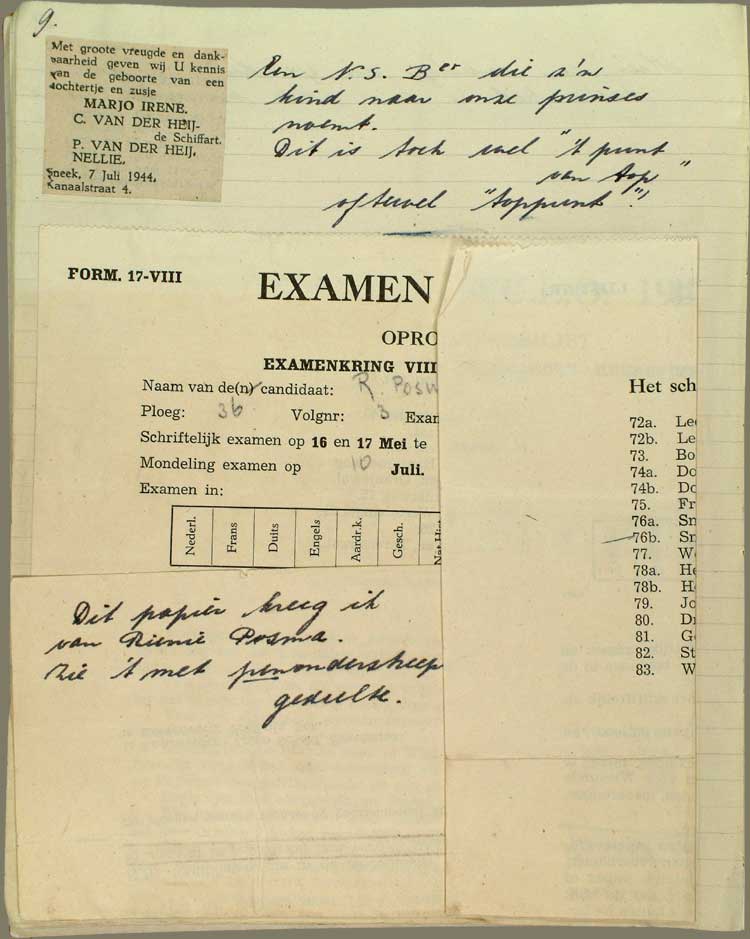 9.
Met groote vreugde en dank-
baarheid geven wij U kennis
van de geboorte van een
dochtertje en zusje
MARJO IRENE.
C. VAN DER HEIJ-
de Schiffart.
P. VAN DER HEIJ,
NELLIE.
Sneek, 7 Juli 1944,
Kanaalstraat 4.
Een N.S.Ber die z'n
kind naar onze prinses
noemt.
Dit is toch wel "'t punt
van top"
oftewel "toppunt"!
FORM. 17-VIII
EXAMEN
OPRO
EXAMENKRING VIII
Naam van de(n) candidaat: R. Posm
Ploeg: 36 Volgnr: 3 Exam
Schriftelijk examen op 16 en 17 Mei te
Mondeling examen op 10 Juli.
Examen in:
Nederl.
Frans
Duits
Engels
Aardr.k.
Gesch.
Nat.Hist
Het sch
72a. Lee
72b. Le
73. Bo
74a. Do
74b. Do
75. Fr
76a. Sn
76b. Sn
77. W
78a. He
78b. H
79. Jo
80. Dr
81. G
82. St
83. W
Dit papier kreeg ik
van Rienie Posma.
Zie 't met pen onderstreep
gedeelte.